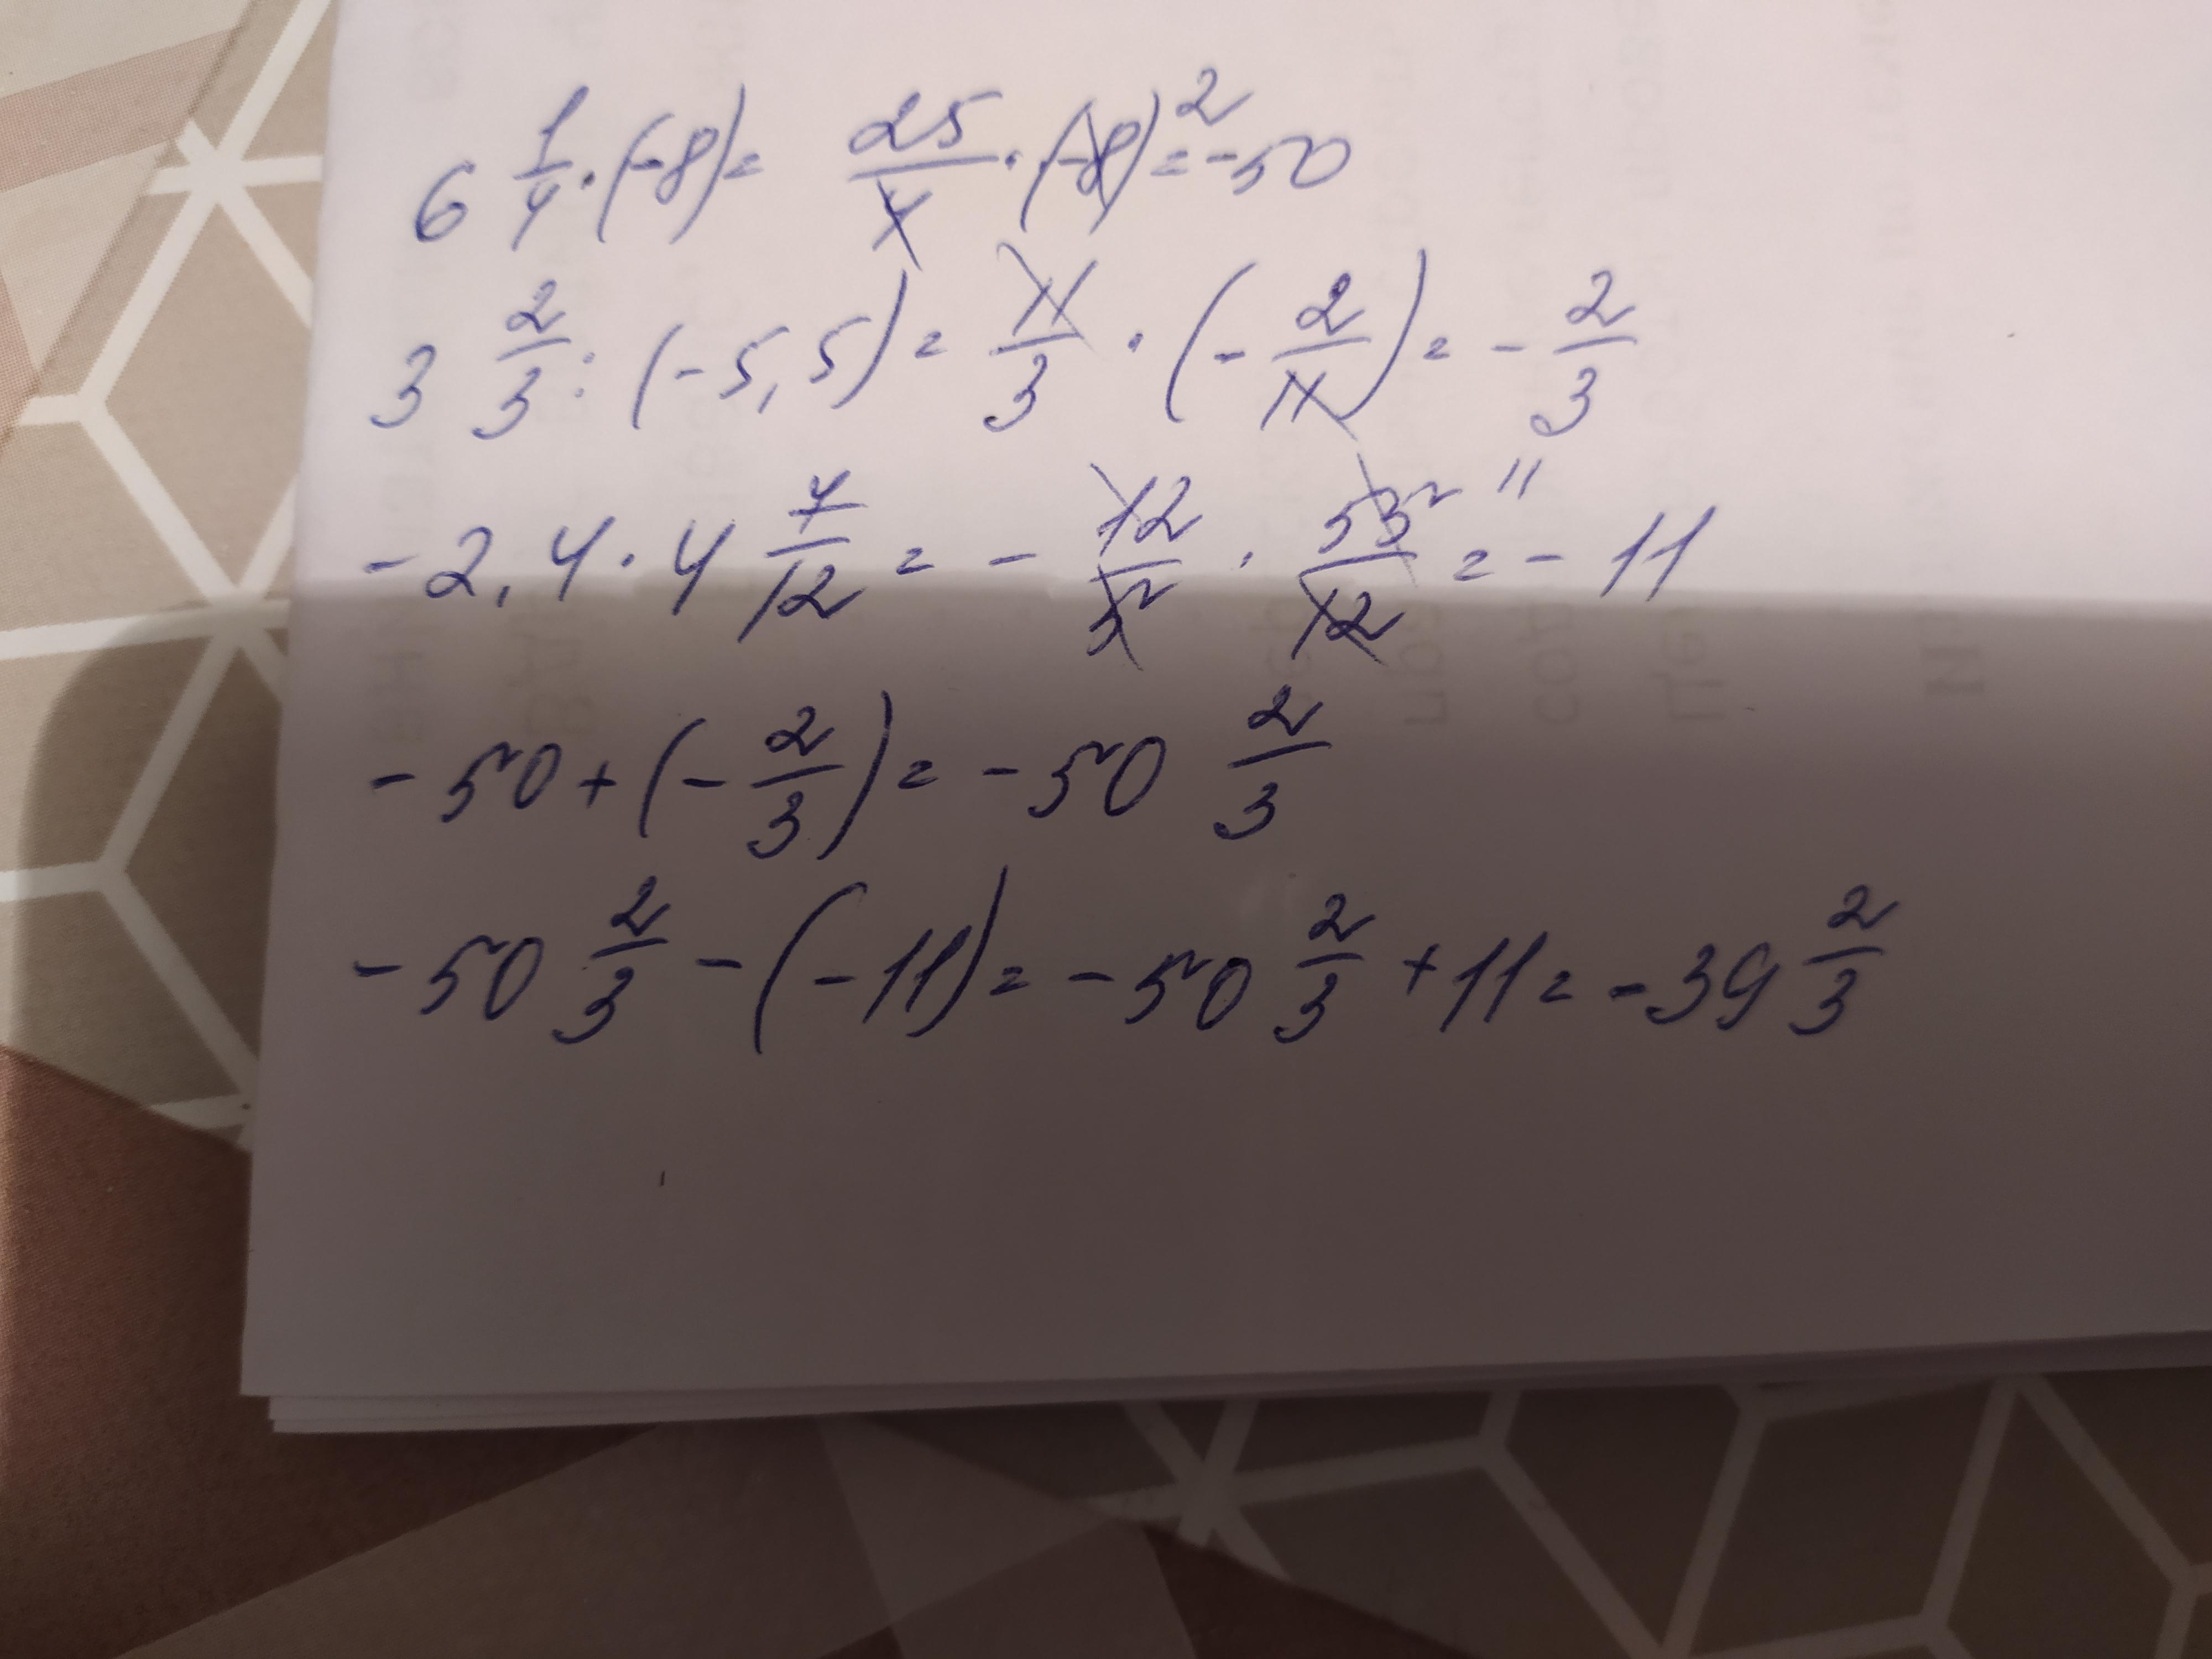 6 1/4 · (-8) = 25/4 · (-8) 2 = -50
3 2/3 : (-5,5) = 11/3 · (- 2/11) = - 2/3
-2,4 · 4 7/12 = - 12/5 · 55/12 11 = - 11
-50 + (- 2/3) = -50 2/3
-50 2/3 - (-11) = -50 2/3 + 11 = -39 2/3